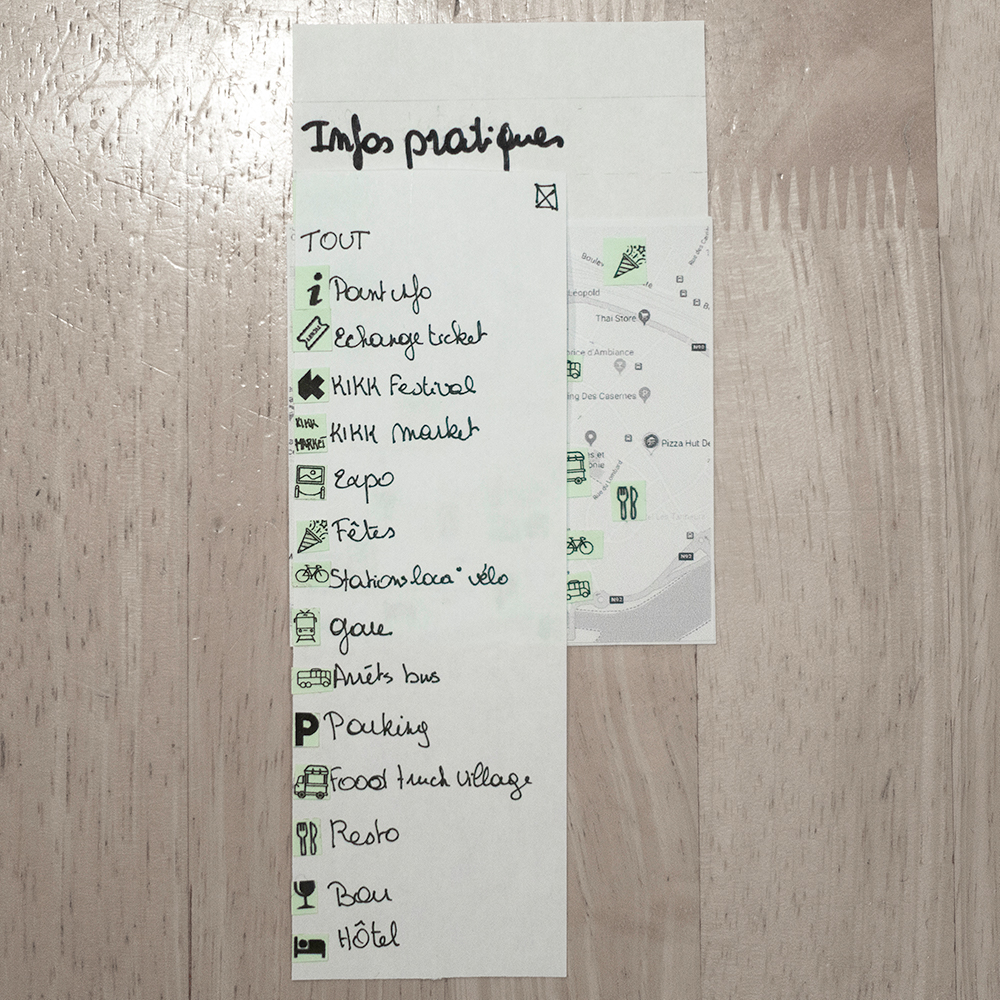 Infos pratiques
TOUT
i Point info
TICKET Echange ticket
KIKK Festival
KIKK MARKET KIKK Market
Expo
Fêtes
Stations loca° vélo
Gare
Arrêts bus
P Parking
Foood truck Village
Resto
Bar
Hôtel
Boule
Rue des
Léopold
Thaï Store
N90
d'Ambiance
Des Casernes
Pizza Hut De
Rue du Lombard
N92
N92